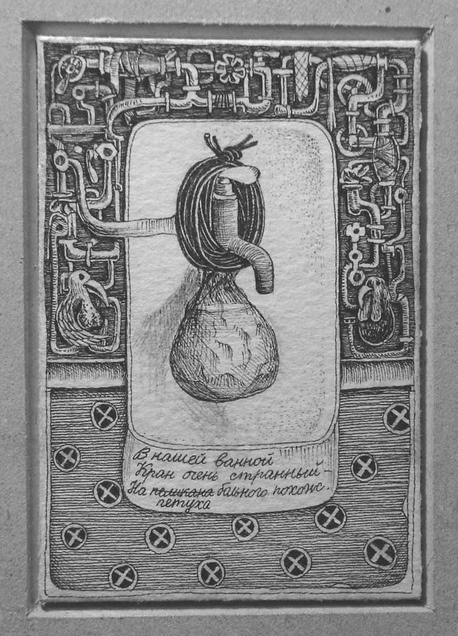 В нашей ванной
Кран очень странный –
На пеликана больного похож.
петуха